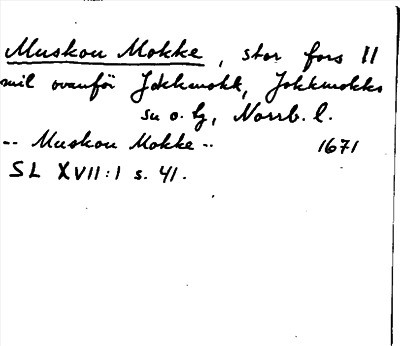 Muskou Mokke, stor fors 11
mil ovanför Jokkmokk, Jokkmokks
sn o. tg, Norrb. l.
-- Muskou Mokke -- 1671
SL XVII:1 s. 41.